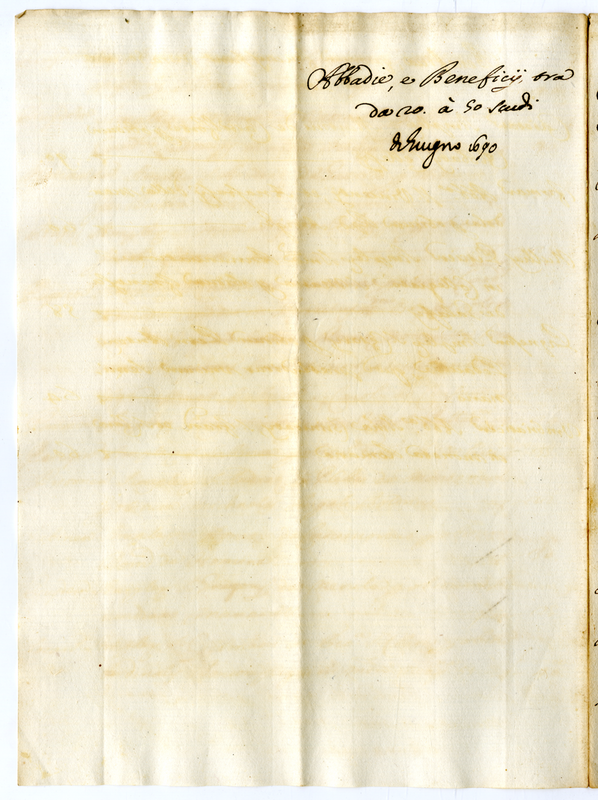 Abbadie, e Beneficij tra
da 20. à 50 scudi
di Giugno 1690